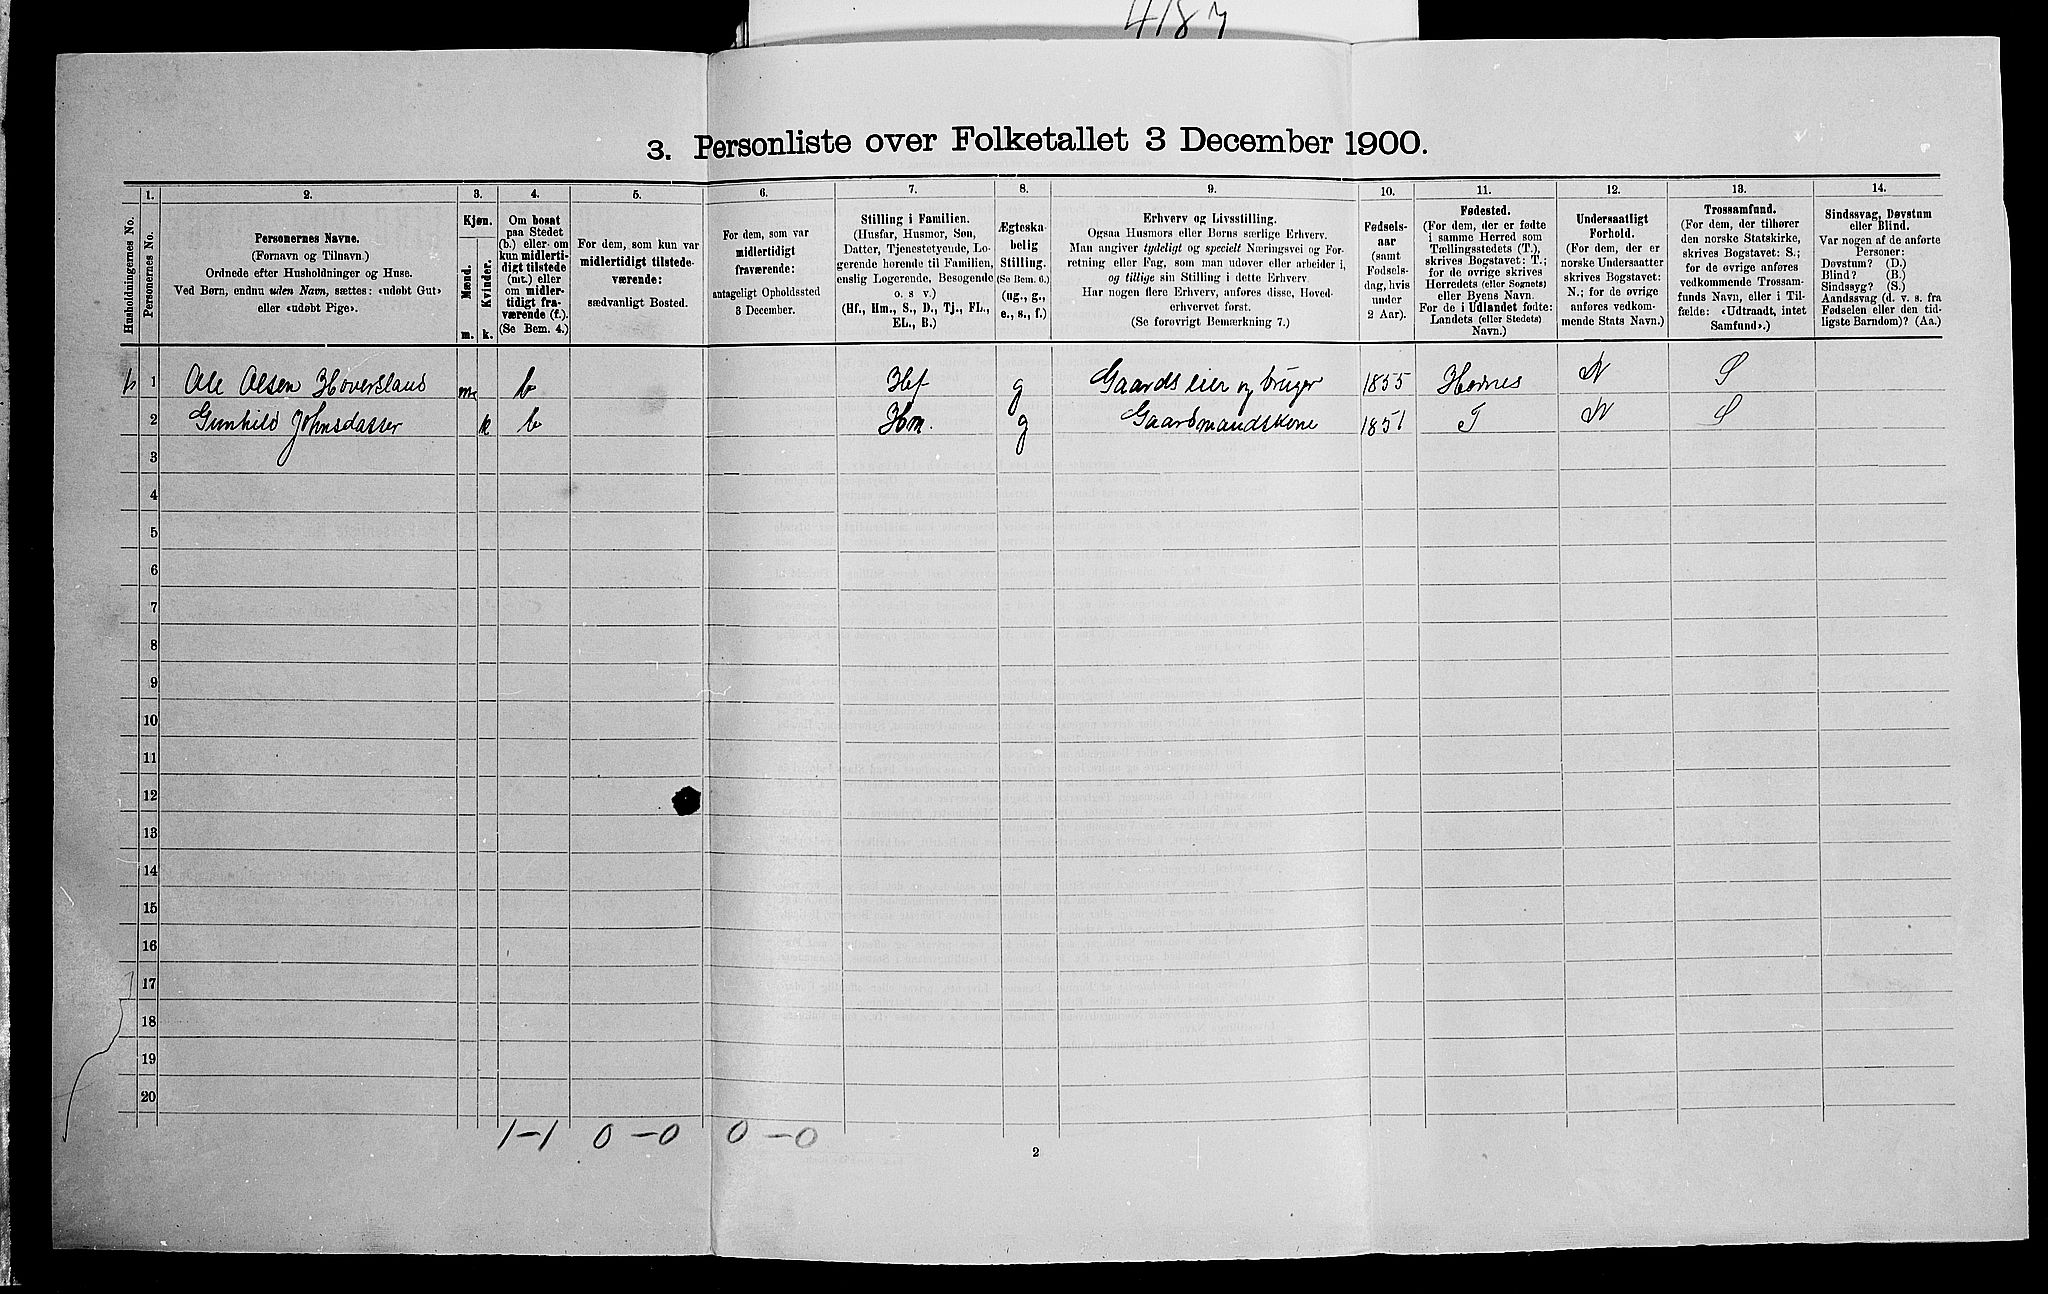 4187
3. Personliste over Folketallet 3 December 1900.
1. 2. 3. 4. 5. 6. 7. 8. 9. 10. 11. 12. 13. 14.
Husholdningernes No.
Personernes No.
Personernes Navne.
(Fornavn og Tilnavn.)
Ordnede efter Husholdninger og Huse.
Ved Børn, endnu uden Navn, sættes: «udøbt Gut»
eller «udøbt Pige».
Kjøn.
Mænd.
Kvinder.
m. k.
Om bosat
paa Stedet
(b.) eller om
kun midlerti-
digt tilstede
(mt.) eller
om midler-
tidigt fra-
værende (f.).
(Se Bem. 4.)
For dem, som kun var
midlertidigt tilstede-
værende:
sædvanligt Bosted.
For dem, som var
midlertidigt
fraværende:
antageligt Opholdssted
3 December.
Stilling i Familien.
(Husfar, Husmor, Søn,
Datter, Tjenestetyende, Lo-
gerende hørende til Familien,
enslig Logerende, Besøgende
o. s v.)
(Hf., Hm., S., D., Tj., FL.,
EL., B.)
Ægteska-
belig
Stilling.
(Se Bem. 6.)
(ug., g.,
e., s., f.)
Erhverv og Livsstilling.
Ogsaa Husmors eller Børns særlige Erhverv.
Man angiver tydeligt og specielt Næringsvei og For-
retning eller Fag, som man udøver eller arbeider i,
og tillige sin Stilling i dette Erhverv.
Har nogen flere Erhverv, anføres disse, Hoved-
erhvervet først.
(Se forøvrigt Bemærkning 7.)
Fødsels-
aar
(samt
Fødsels-
dag, hvis
under
2 Aar).
Fødested.
(For dem, der er fødte
i samme Herred som
Tællingsstedets (T.),
skrives Bogstavet: T.;
for de øvrige skrives
Herredets (eller Sognets)
eller Byens Navn.
For de i Udlandet fødte:
Landets (eller Stedets)
Navn.)
Undersaatligt
Forhold.
(For dem, der er
norske Undersaatter
skrives Bogstavet:
N.; for de øvrige
anføres vedkom-
mende Stats Navn.)
Trossamfund.
(For dem, der tilhører
den norske Statskirke,
skrives Bogstavet: S.;
for de øvrige anføres
vedkommende Trossam-
funds Navn, eller i Til-
fælde: «Udtraadt, intet
Samfund».)
Sindssvag, Døvstum
eller Blind.
Var nogen af de anførte
Personer:
Døvstum? (D.)
Blind? (B.)
Sindssyg? (S.)
Aandssvag (d. v. s. fra
Fødselen eller den tid-
ligste Barndom)? (Aa.)
1 Ole Olsen Hoversland m b Hf g Gaardseier og bruger 1855 Hornes N S
2 Gunhild Johnsdatter k b Hm. g Gaardmandskone 1851 T N S
3
4
5
6
7
8
9
10
11
12
13
14
15
16
17
18
19
20
1-1 0-0 0-0
2